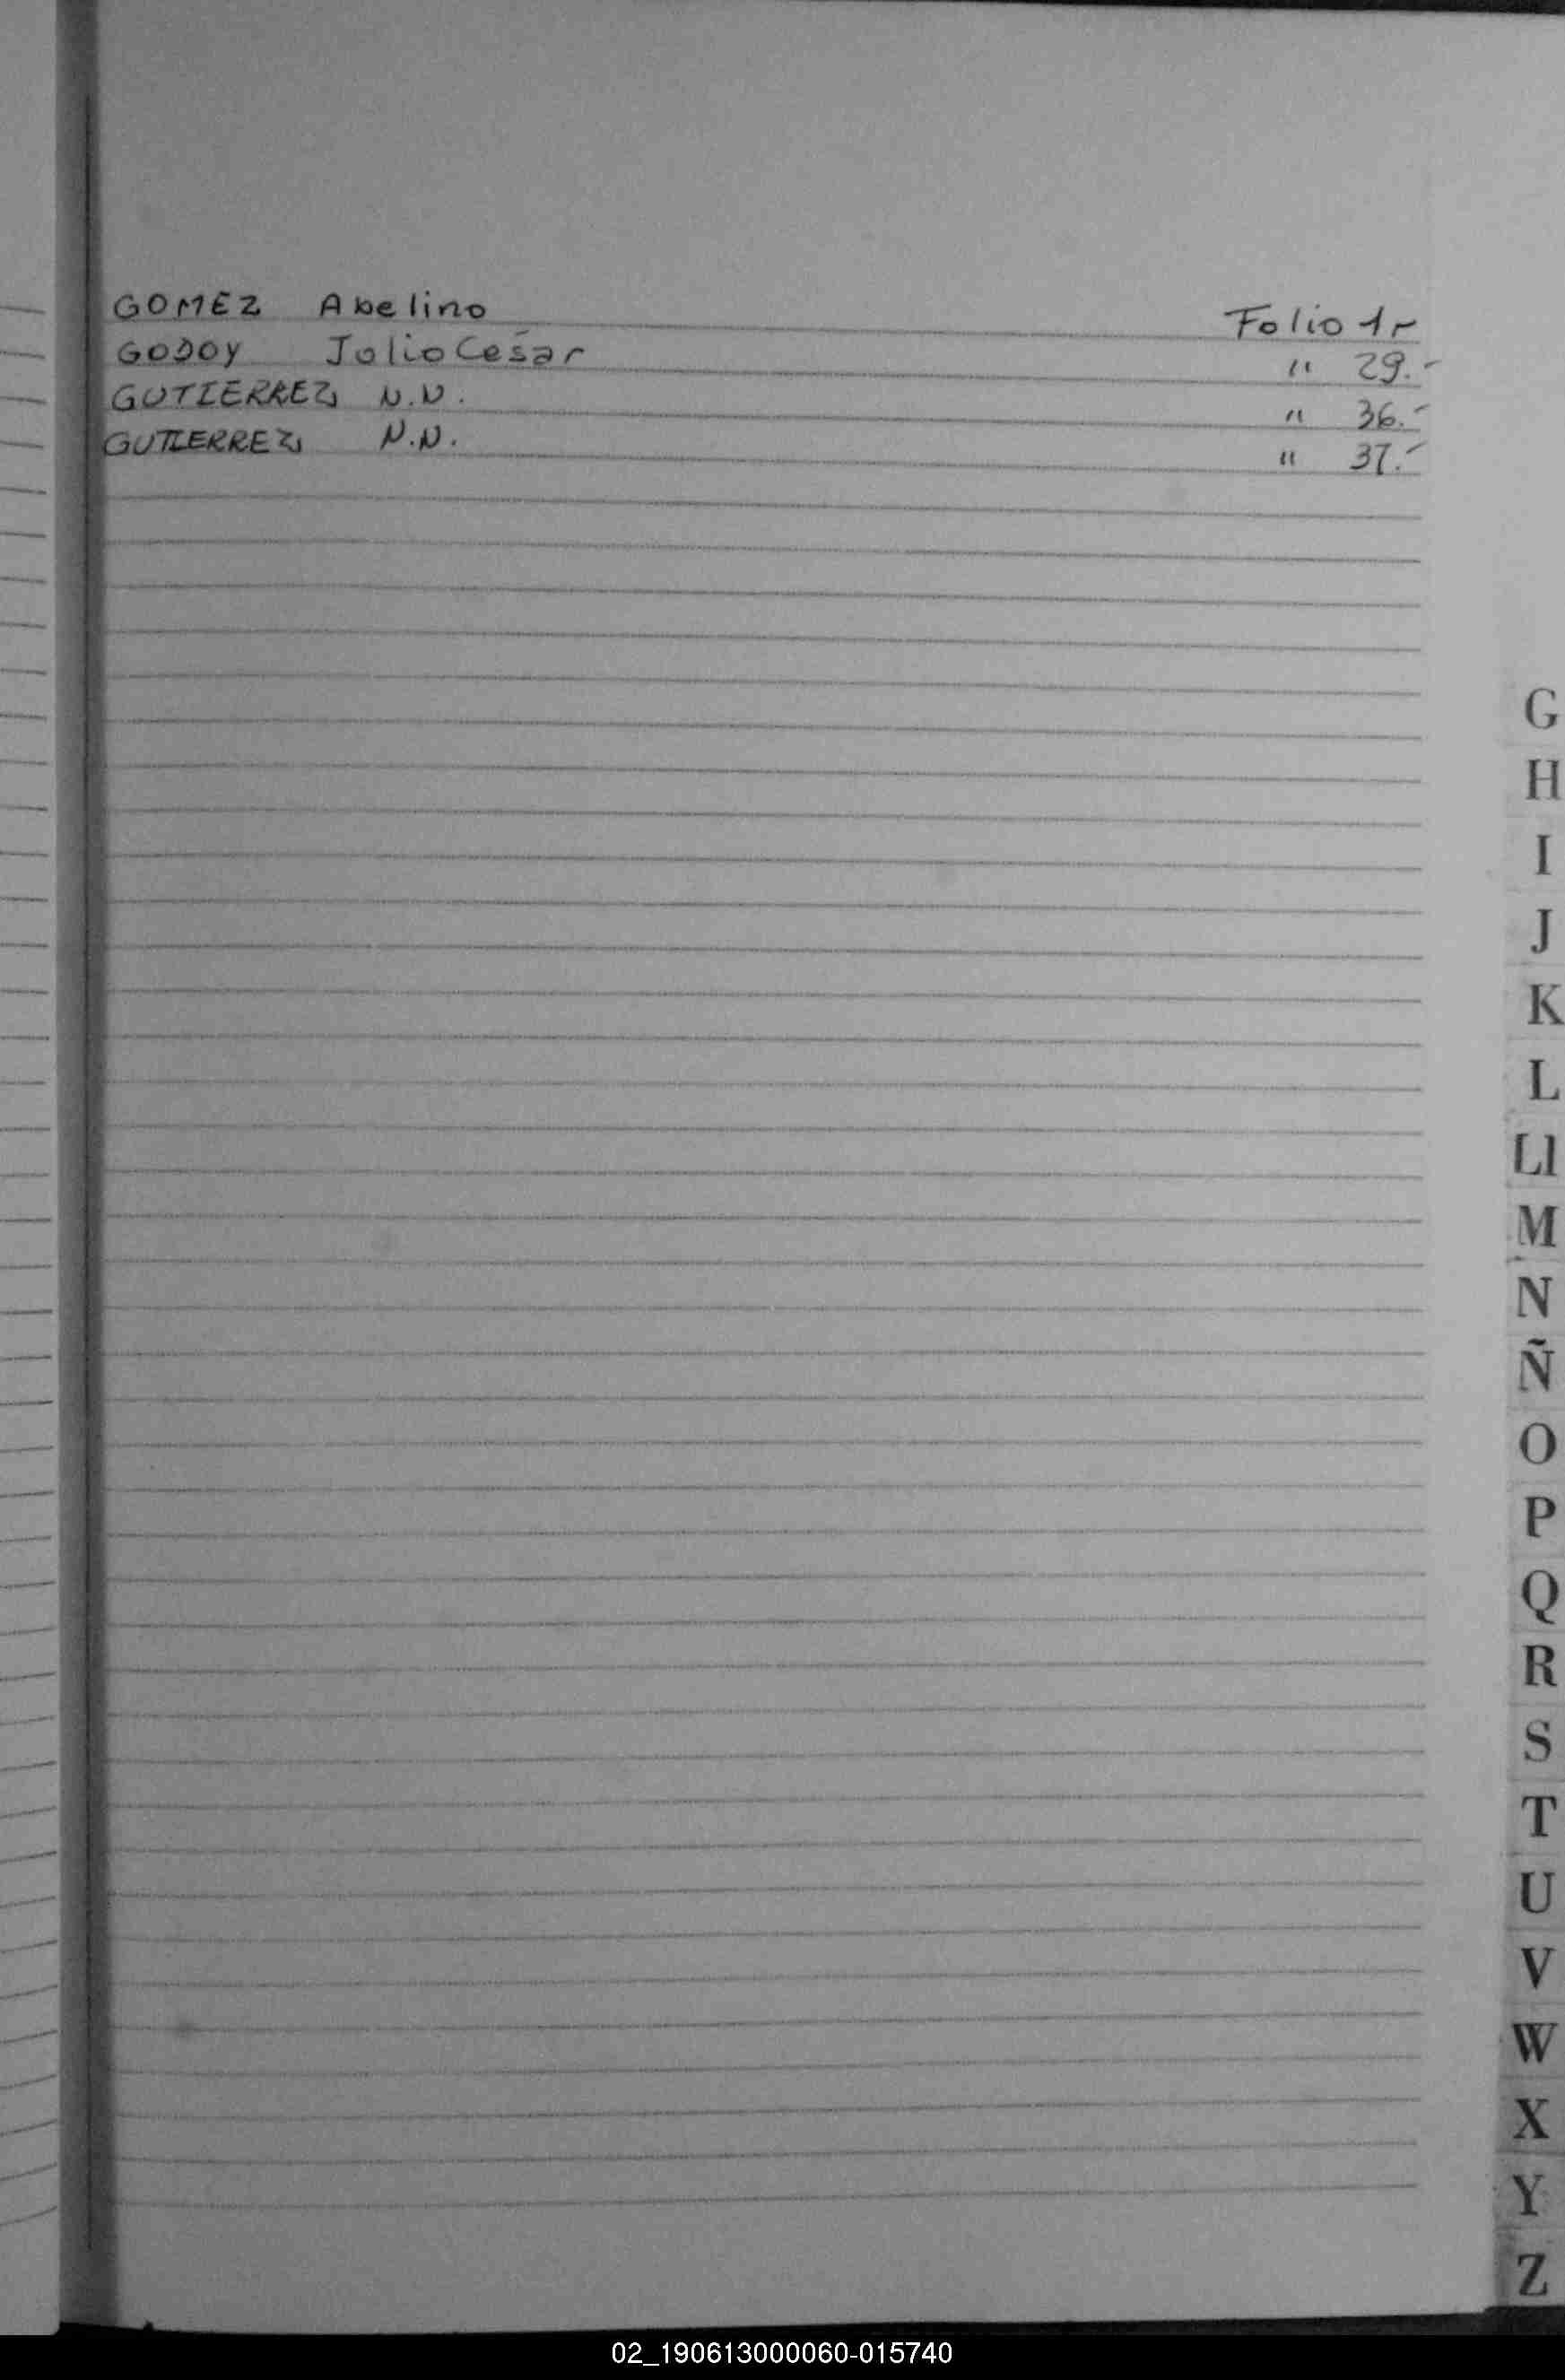 GOMEZ Abelino Folio 1r
GODOY Julio Cesar " 29.-
GUTIERREZ N.N. " 36.-
GUTIERREZ N.N. " 37.-
G
H
I
J
K
L
Ll
M
N
Ñ
O
P
Q
R
S
T
U
V
W
X
Y
Z
02_190613000060-015740